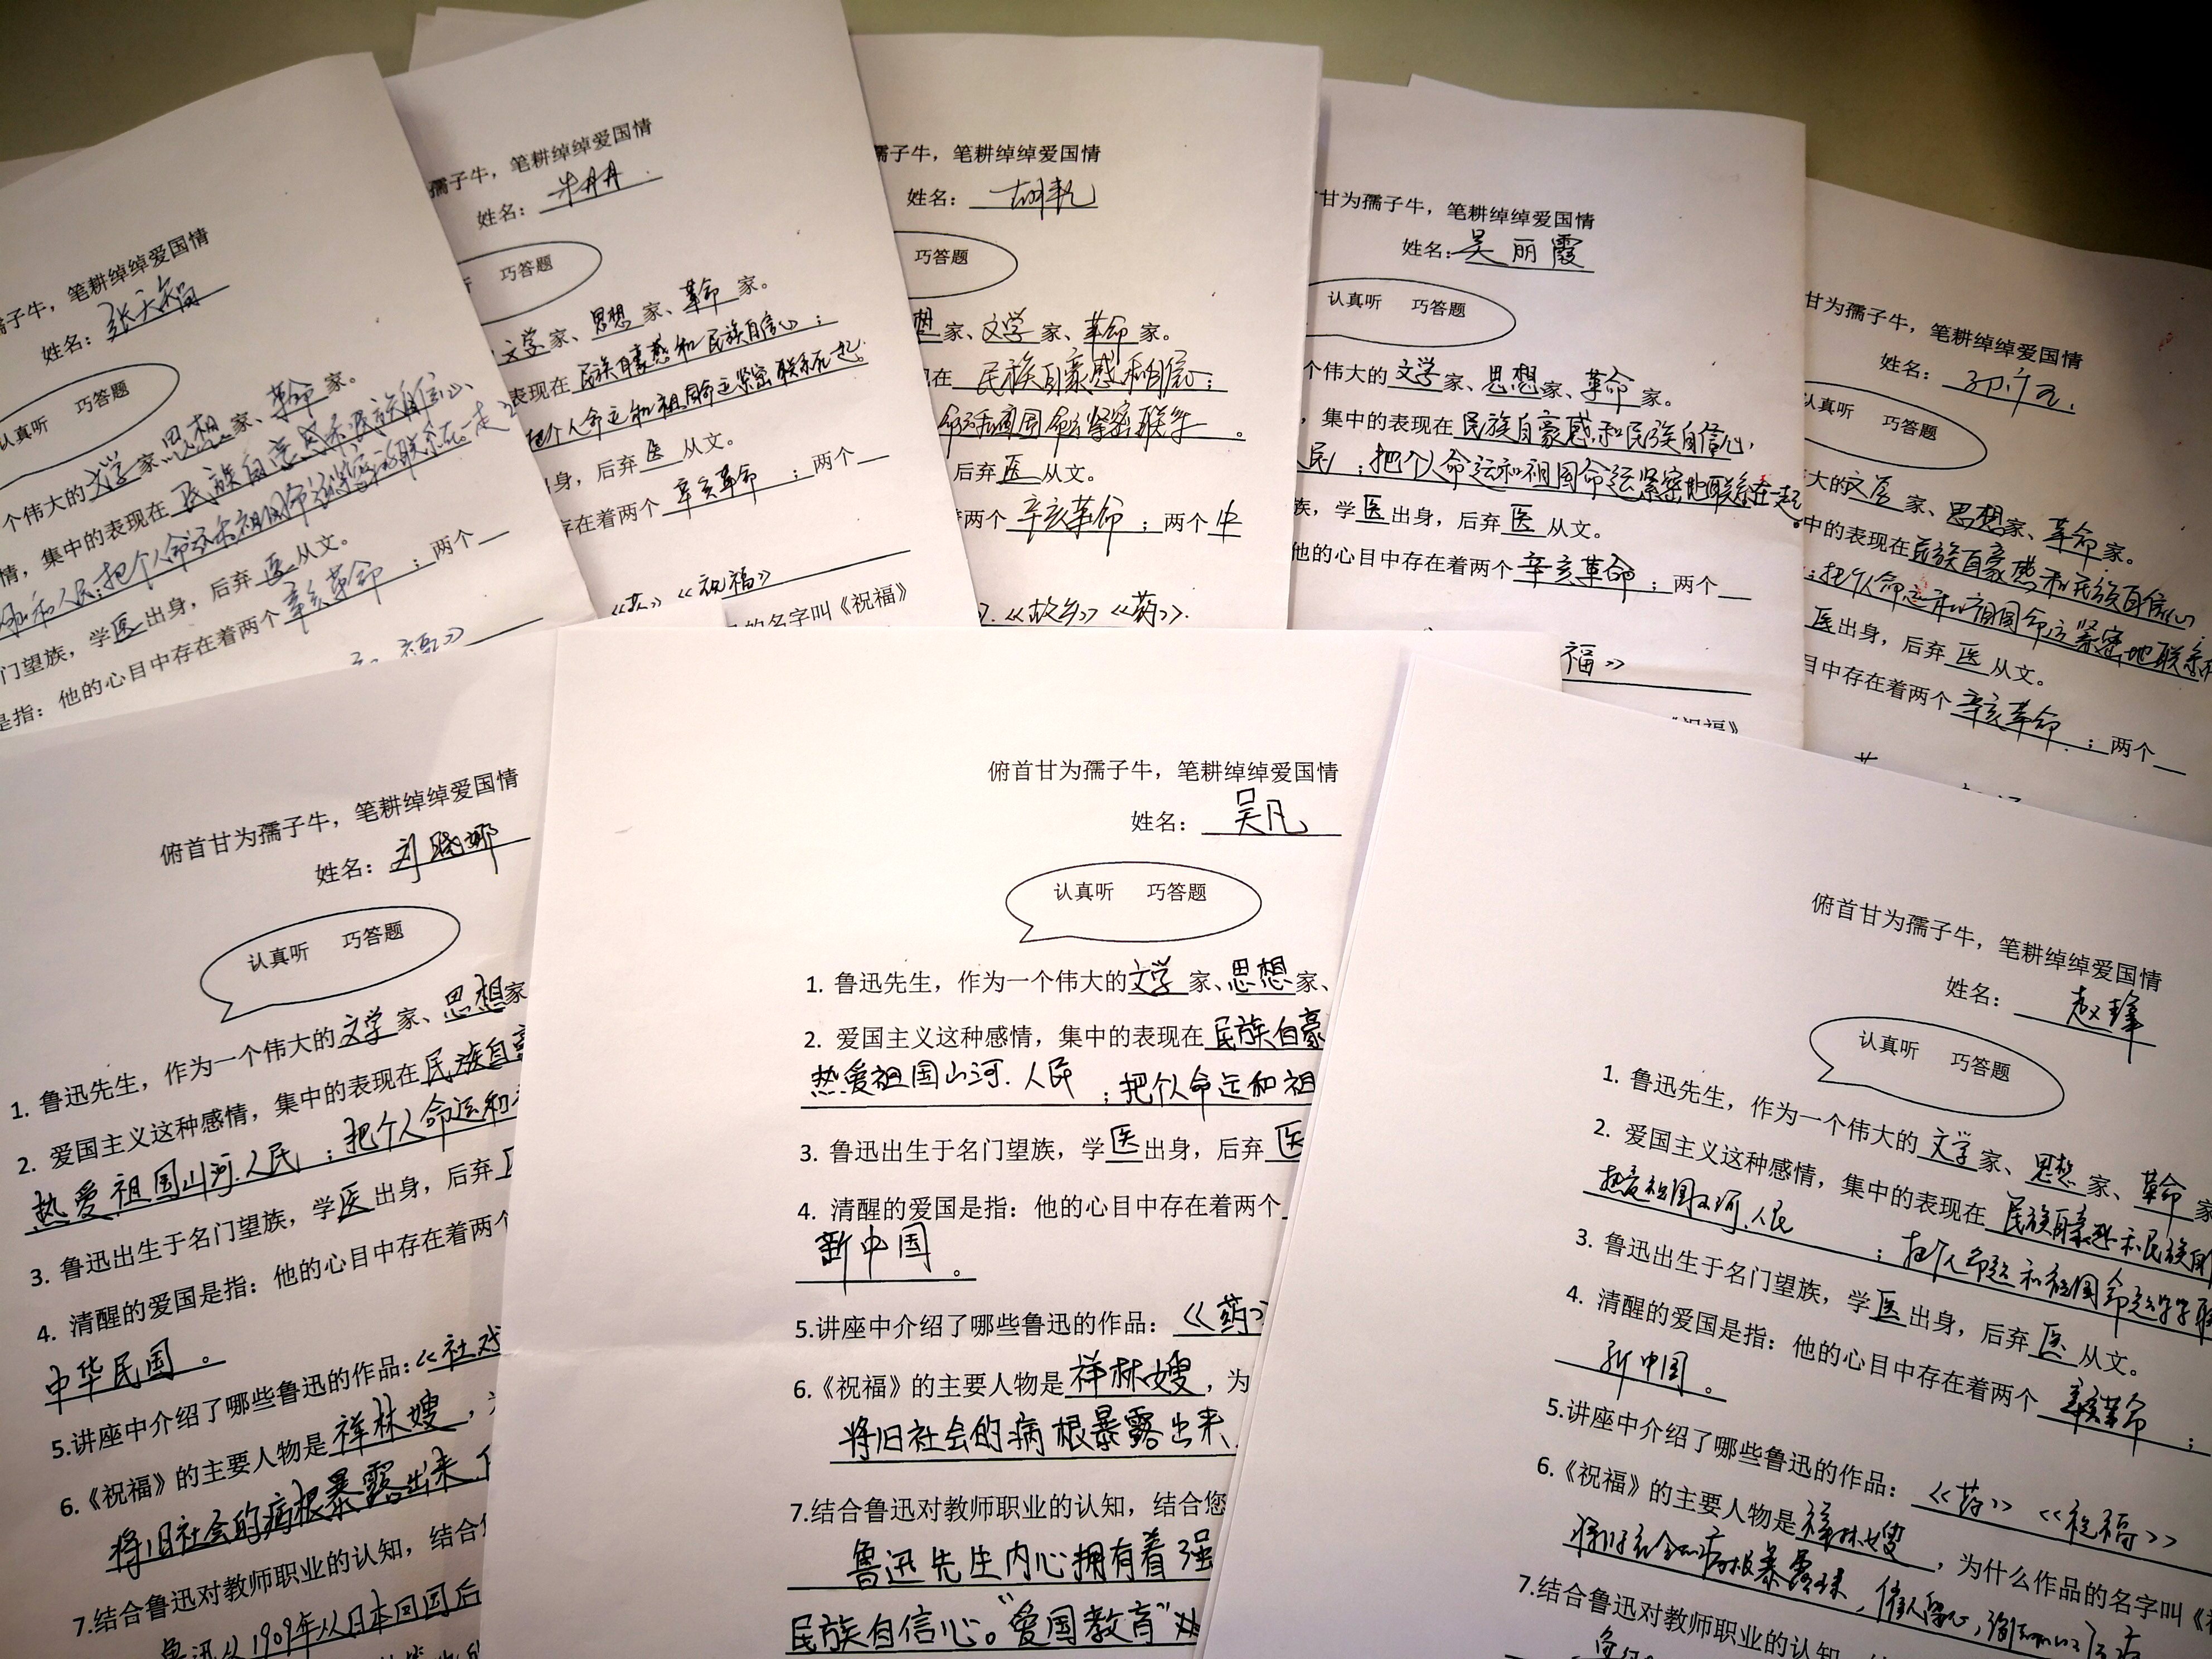 孺子牛，笔耕绰绰爱国情
姓名：张天智
认真听 巧答题
个伟大的文学家、思想家、革命家。
情，集中的表现在民族自豪感和民族自信心、
和人民；把个人命运和祖国命运紧密的联系在一起
门望族，学医出身，后弃医从文。
是指：他的心目中存在着两个辛亥革命；两个
福》
孺子牛，笔耕绰绰爱国情
姓名：朱丹丹
巧答题
文学家、思想家、革命家。
表现在民族自豪感和民族自信心；
把个人命运和祖国命运紧密联系在一起.
身，后弃医从文。
存在着两个辛亥革命；两个
《药》《祝福》
的名字叫《祝福》
孺子牛，笔耕绰绰爱国情
姓名：胡乾
巧答题
想家、文学家、革命家。
在民族自豪感和自信心；
命运和祖国命运紧密联系。
后弃医从文。
两个辛亥革命；两个中
《故乡》《药》.
甘为孺子牛，笔耕绰绰爱国情
姓名：吴丽霞
认真听 巧答题
个伟大的文学家、思想家、革命家。
，集中的表现在民族自豪感和民族自信心，
人民；把个人命运和祖国命运紧密地联系在一起。
族，学医出身，后弃医从文。
他的心目中存在着两个辛亥革命；两个
福》
《祝福》
甘为孺子牛，笔耕绰绰爱国情
姓名：
认真听 巧答题
大的文学家、思想家、革命家。
中的表现在民族自豪感和民族自信心
；把个人命运和祖国命运紧密地联系在
医出身，后弃医从文。
目中存在着两个辛亥革命；两个
俯首甘为孺子牛，笔耕绰绰爱国情
姓名：刘晓娜
认真听 巧答题
1. 鲁迅先生，作为一个伟大的文学家、思想家
2. 爱国主义这种感情，集中的表现在民族自豪
热爱祖国山河.人民；把个人命运和
3. 鲁迅出生于名门望族，学医出身，后弃医
4. 清醒的爱国是指：他的心目中存在着两个
中华民国。
5.讲座中介绍了哪些鲁迅的作品：《社戏
6.《祝福》的主要人物是祥林嫂，为
将旧社会的病根暴露出来
7.结合鲁迅对教师职业的认知，结合您
鲁迅从1909年从日本回国后
俯首甘为孺子牛，笔耕绰绰爱国情
姓名：吴凡
认真听 巧答题
1. 鲁迅先生，作为一个伟大的文学家、思想家、
2. 爱国主义这种感情，集中的表现在民族自豪
热爱祖国山河.人民；把个人命运和祖
3. 鲁迅出生于名门望族，学医出身，后弃医
4. 清醒的爱国是指：他的心目中存在着两个
新中国。
5.讲座中介绍了哪些鲁迅的作品：《药》
6.《祝福》的主要人物是祥林嫂，为
将旧社会的病根暴露出来.
7.结合鲁迅对教师职业的认知，结合您
鲁迅先生内心拥有着强
民族自信心。“爱国教育”对
俯首甘为孺子牛，笔耕绰绰爱国情
姓名：赵锋
认真听 巧答题
1. 鲁迅先生，作为一个伟大的文学家、思想家、革命家
2. 爱国主义这种感情，集中的表现在民族自豪感和民族自
热爱祖国山河.人民；把个人命运和祖国命运紧密联
3. 鲁迅出生于名门望族，学医出身，后弃医从文。
4. 清醒的爱国是指：他的心目中存在着两个辛亥革命；
新中国。
5.讲座中介绍了哪些鲁迅的作品：《药》《祝福》
6.《祝福》的主要人物是祥林嫂，为什么作品的名字叫《祝
将旧社会的病根暴露出来，催人留心，
7.结合鲁迅对教师职业的认知，